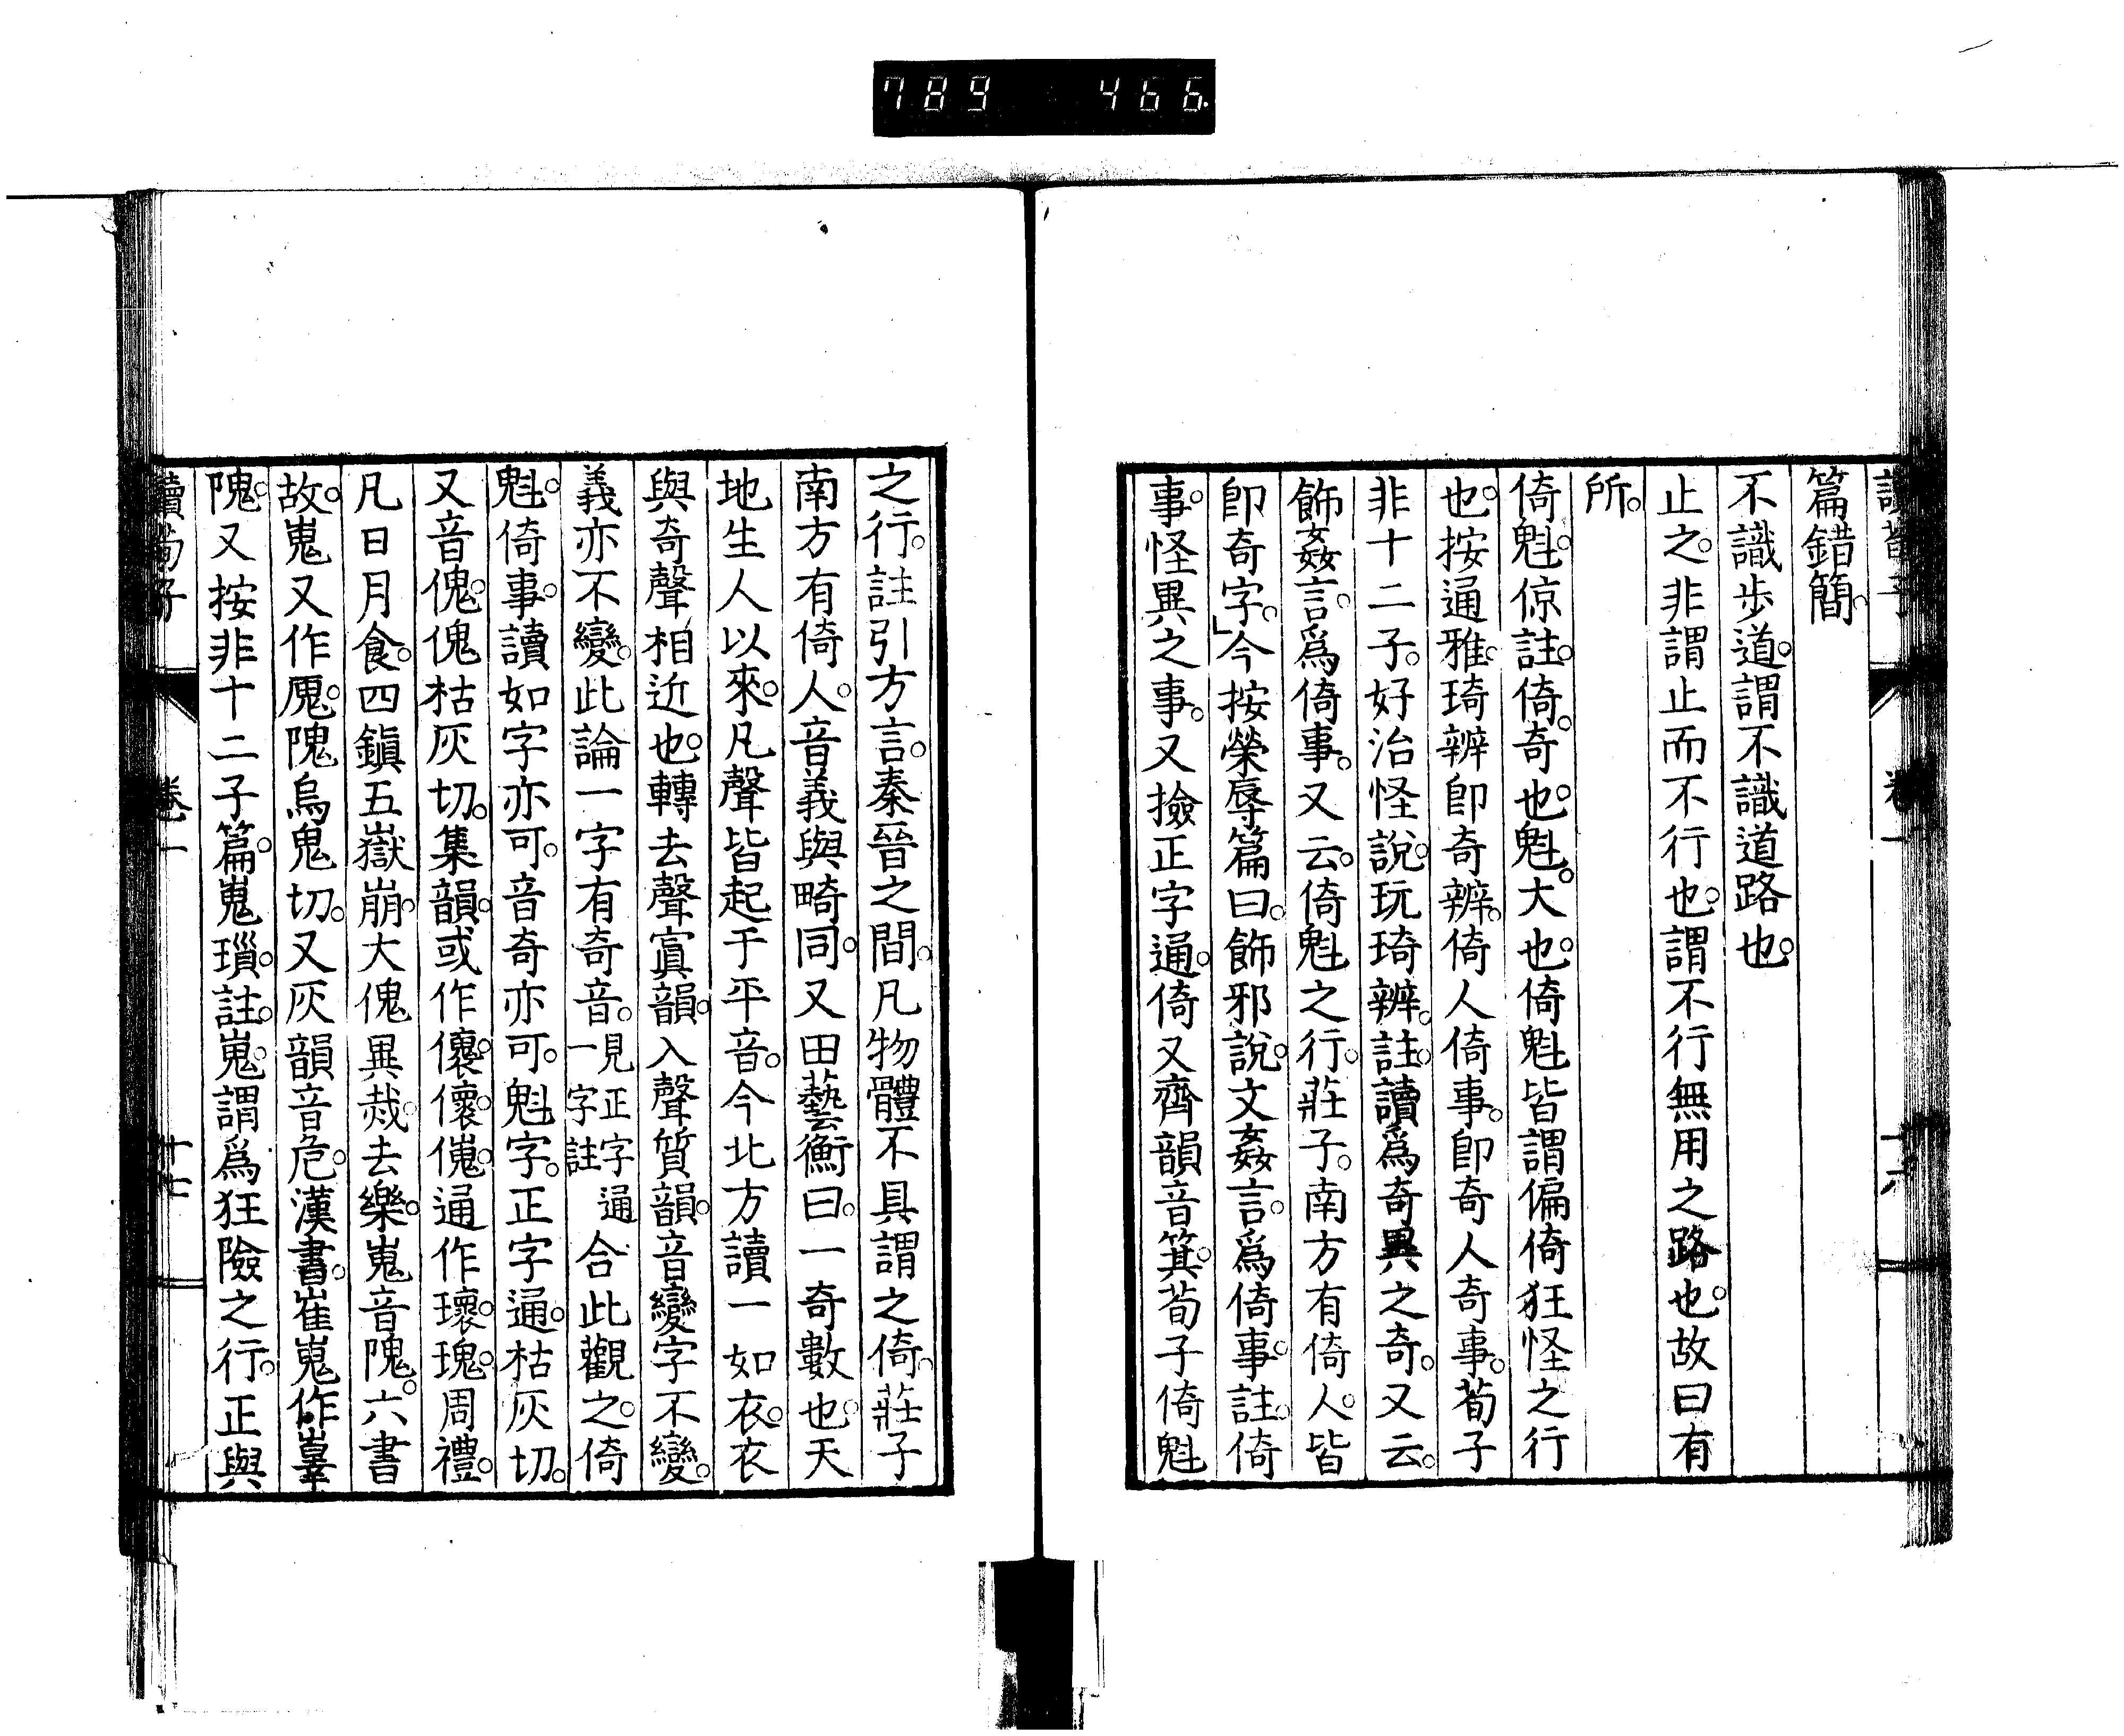 789 466.
讀荀子 卷一 十六
篇錯簡。
不識步道。謂不識道路也。
止之。非謂止而不行也。謂不行無用之路也。故曰有
所。
倚魁。倞註。倚。奇也。魁。大也。倚魁皆謂偏倚狂怪之行
也。按通雅。琦辨卽奇辨。倚人倚事。卽奇人奇事。荀子
非十二子。好治怪說。玩琦辨。註。讀爲奇異之奇。又云。
飾姦言。爲倚事。又云。倚魁之行。莊子。南方有倚人。皆
卽奇字。」今按榮辱篇曰。飾邪說。文姦言。爲倚事。註。倚
事。怪異之事。又撿正字通。倚又齊韻音箕。荀子倚魁
之行。註引方言。秦晉之間。凡物體不具謂之倚。莊子
南方有倚人。音義與畸同。又田藝衡曰。一奇數也。天
地生人以來。凡聲皆起于平音。今北方讀一如衣。衣
與奇聲相近也。轉去聲寘韻。入聲質韻。音變字不變。
義亦不變。此論一字有奇音。見正字通一字註 合此觀之。倚
魁。倚事。讀如字亦可。音奇亦可。魁字。正字通。枯灰切。
又音傀。傀枯灰切。集韻。或作儴。懷。傀。通作瓌。瑰。周禮。
凡日月食。四鎭五嶽崩。大傀異烖。去樂。嵬音隗。六書
故。嵬又作峞。隗烏鬼切。又灰韻音危。漢書。崔嵬作辠
隗。又按非十二子篇。嵬瑣。註。嵬。謂爲狂險之行。正與
讀荀子 卷一 十七